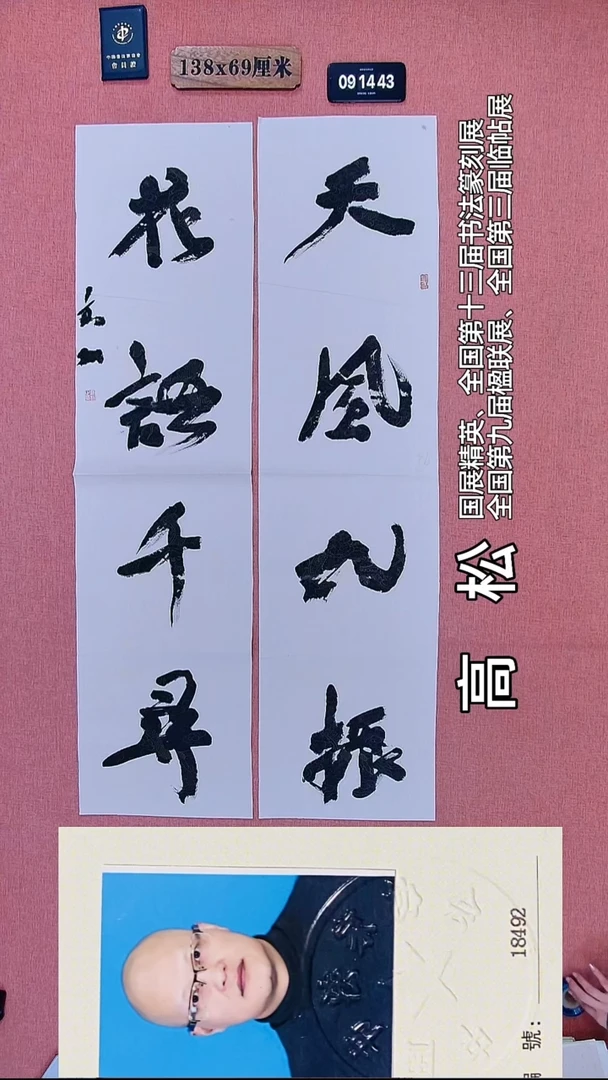 中国书法家协会
會員證
138x69厘米
09 14 43
天風九振
花語千尋
国展精英、全国第十三届书法篆刻展
全国第九届楹联展、全国第三届临帖展
高 松
號: 18492